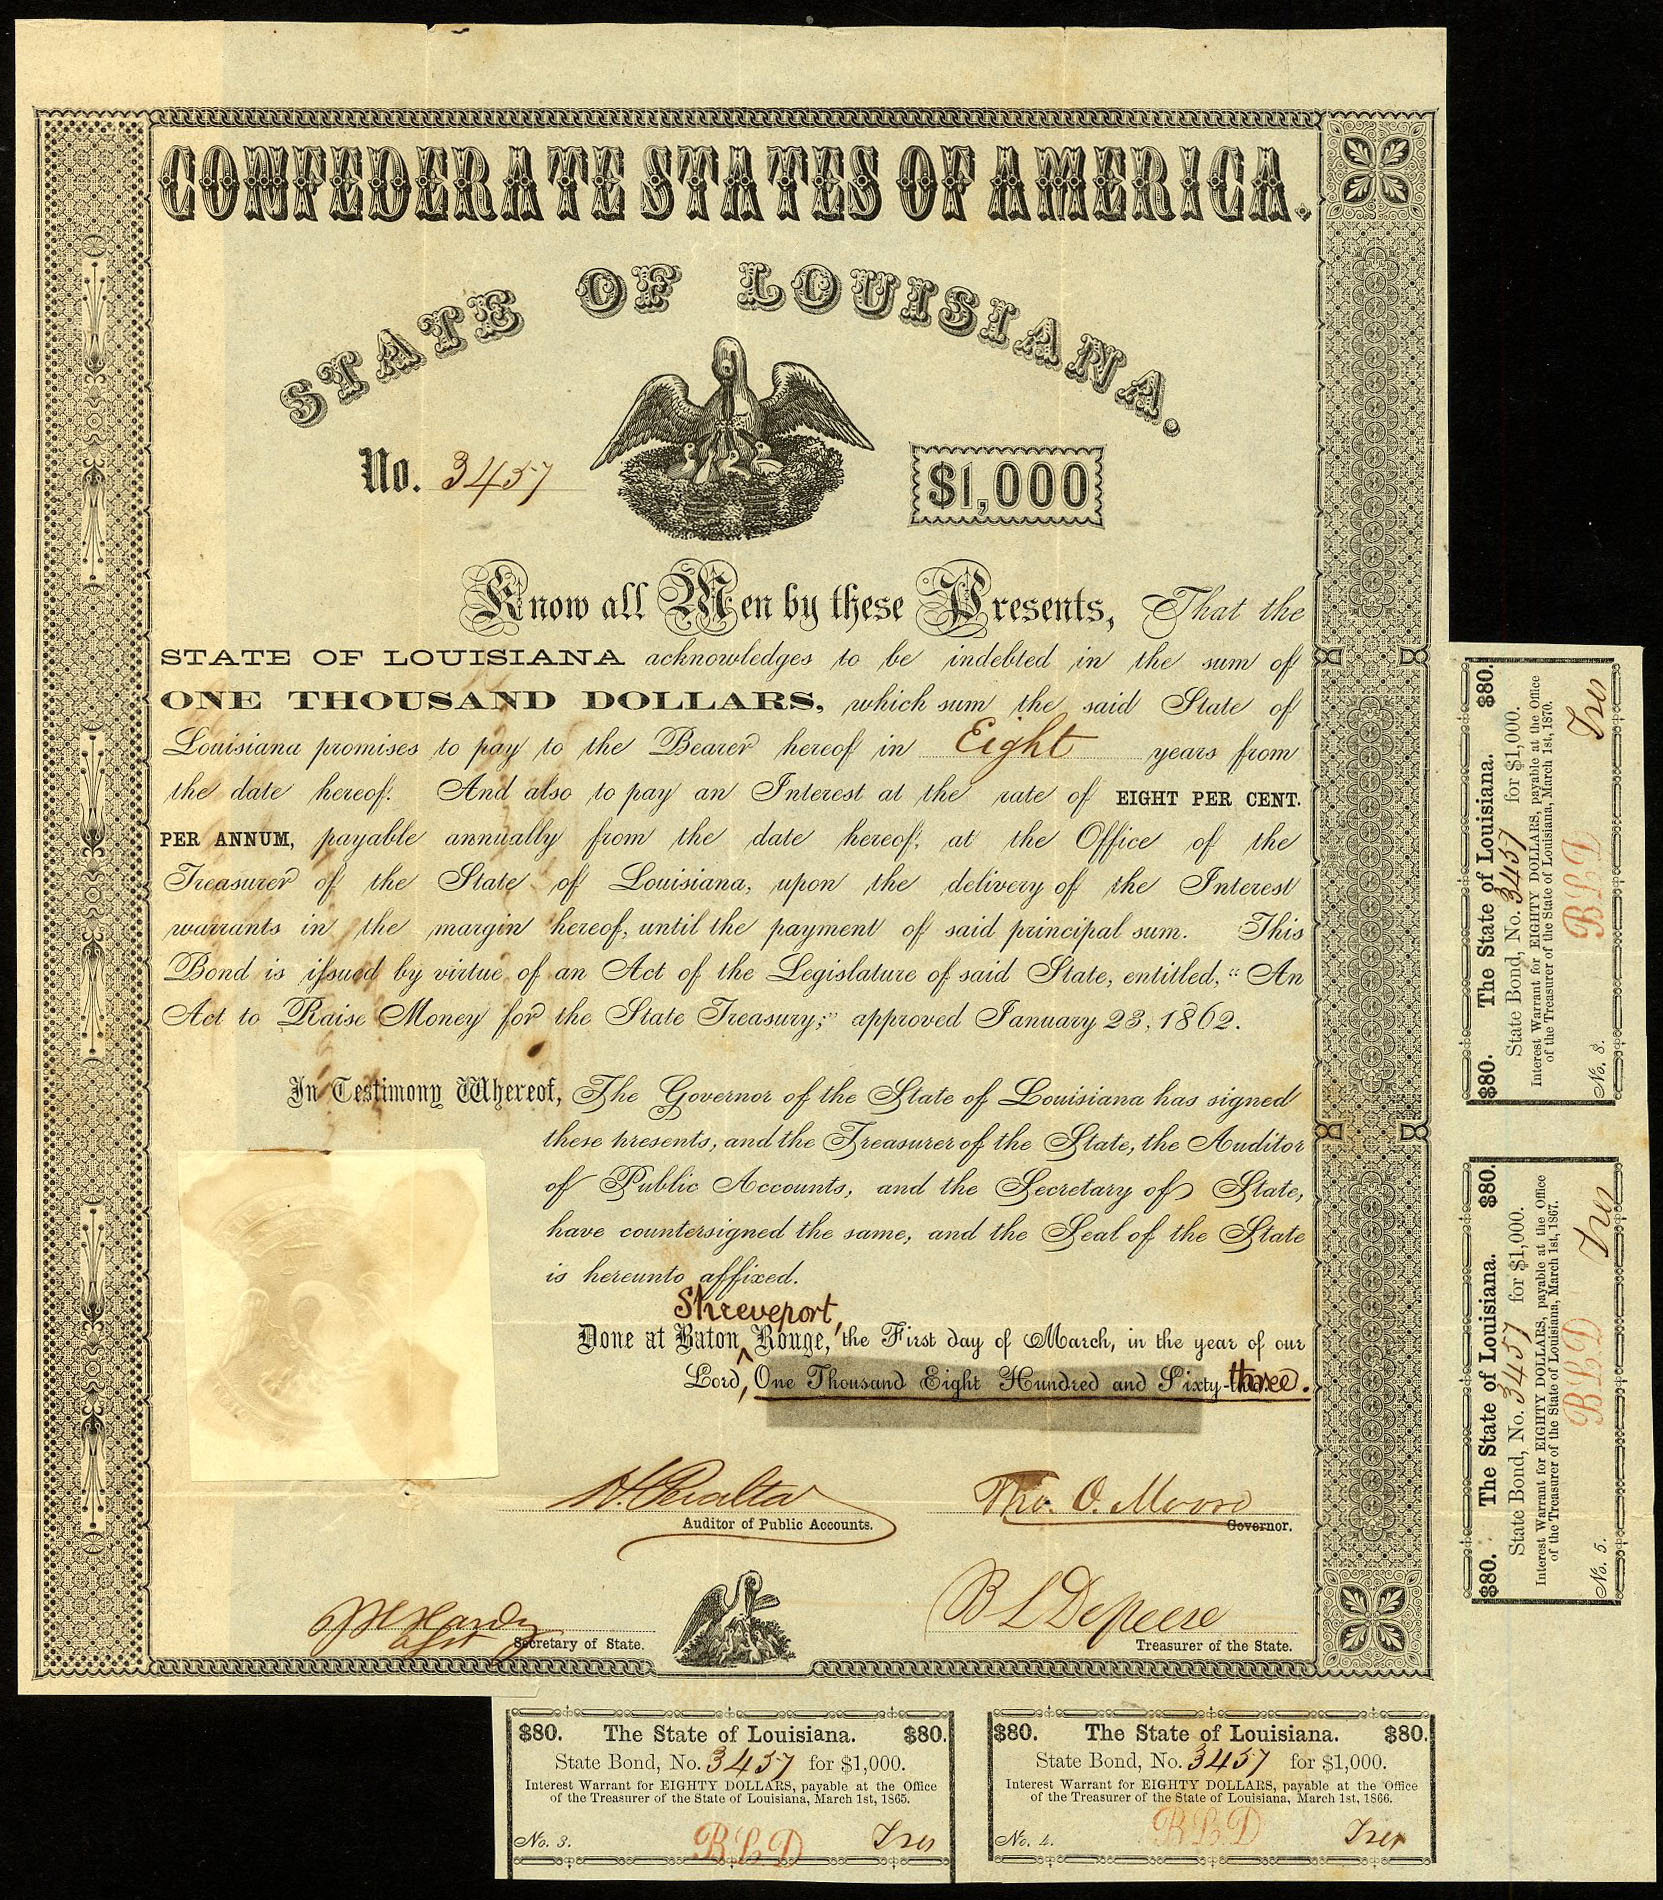 CONFEDERATE STATES OF AMERICA.
STATE OF LOUISIANA.
No. 3457
$1,000
Know all Men by these Presents, That the
STATE OF LOUISIANA acknowledges to be indebted in the sum of
ONE THOUSAND DOLLARS, which sum the said State of
Louisiana promises to pay to the Bearer hereof in Eight years from
the date hereof. And also to pay an Interest at the rate of EIGHT PER CENT.
PER ANNUM, payable annually from the date hereof, at the Office of the
Treasurer of the State of Louisiana, upon the delivery of the Interest
warrants in the margin hereof, until the payment of said principal sum. This
Bond is issued by virtue of an Act of the Legislature of said State, entitled, "An
Act to Raise Money for the State Treasury;" approved January 23, 1862.
In Testimony Whereof, The Governor of the State of Louisiana has signed
these presents, and the Treasurer of the State, the Auditor
of Public Accounts, and the Secretary of State,
have countersigned the same, and the Seal of the State
is hereunto affixed.
Shreveport,
Done at Baton Rouge, the First day of March, in the year of our
Lord, One Thousand Eight Hundred and Sixty-three.
H. Peralta
Auditor of Public Accounts.
Tho. O. Moore
Governor.
Hardy
Secretary of State.
B L Defreese
Treasurer of the State.
$80. The State of Louisiana. $80.
State Bond, No. 3457 for $1,000.
Interest Warrant for EIGHTY DOLLARS, payable at the Office
of the Treasurer of the State of Louisiana, March 1st, 1865.
No. 3. BLD Tres
$80. The State of Louisiana. $80.
State Bond, No. 3457 for $1,000.
Interest Warrant for EIGHTY DOLLARS, payable at the Office
of the Treasurer of the State of Louisiana, March 1st, 1866.
No. 4. BLD Tres
$80. The State of Louisiana. $80.
State Bond, No. 3457 for $1,000.
Interest Warrant for EIGHTY DOLLARS, payable at the Office
of the Treasurer of the State of Louisiana, March 1st, 1867.
No. 5. BLD Tres
$80. The State of Louisiana. $80.
State Bond, No. 3457 for $1,000.
Interest Warrant for EIGHTY DOLLARS, payable at the Office
of the Treasurer of the State of Louisiana, March 1st, 1870.
No. 8. BLD Tres